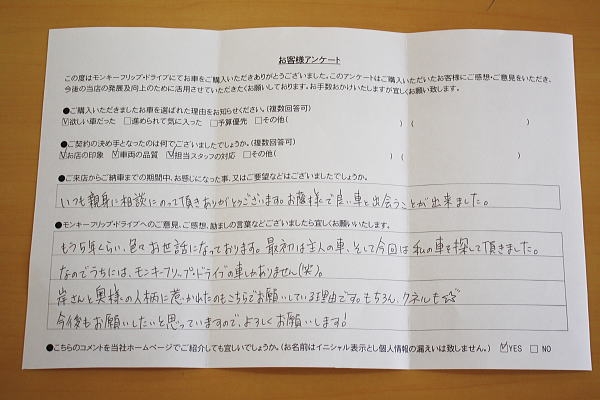 お客様アンケート
この度はモンキーフリップ・ドライブにてお車をご購入いただきありがとうございました。このアンケートはご購入いただいたお客様にご感想・ご意見をいただき、
今後の当店の発展及向上のために活用させていただきたくお願いしております。お手数おかけいたしますが宜しくお願い致します。
●ご購入いただきましたお車を選ばれた理由をお知らせください。(複数回答可)
☑欲しい車だった □進められて気に入った □予算優先 □その他( ) ( )
●ご契約の決め手となったのは何でございましたでしょうか。(複数回答可)
☑お店の印象 ☑車両の品質 ☑担当スタッフの対応 □その他( ) ( )
●ご来店からご納車までの期間中、お感じになった事、又はご要望などはございましたでしょうか。
いつも親身に相談にのって頂きありがとうございます。お蔭様で良い車と出会うことが出来ました。
●モンキーフリップ・ドライブへのご意見、ご感想、励ましの言葉などございましたら宜しくお願いいたします。
もう5年くらい、色々お世話になっております。最初は主人の車、そして今回は私の車を探して頂きました。
なのでうちには、モンキーフリップ・ドライブの車しかありません(笑)。
岸さんと奥様の人柄に惹かれたのもこちらでお願いしている理由です。もちろん、クネルも☆
今後もお願いしたいと思っていますので、よろしくお願いします!
●こちらのコメントを当社ホームページでご紹介しても宜しいでしょうか。(お名前はイニシャル表示とし個人情報の漏えいは致しません。) ☑YES □NO